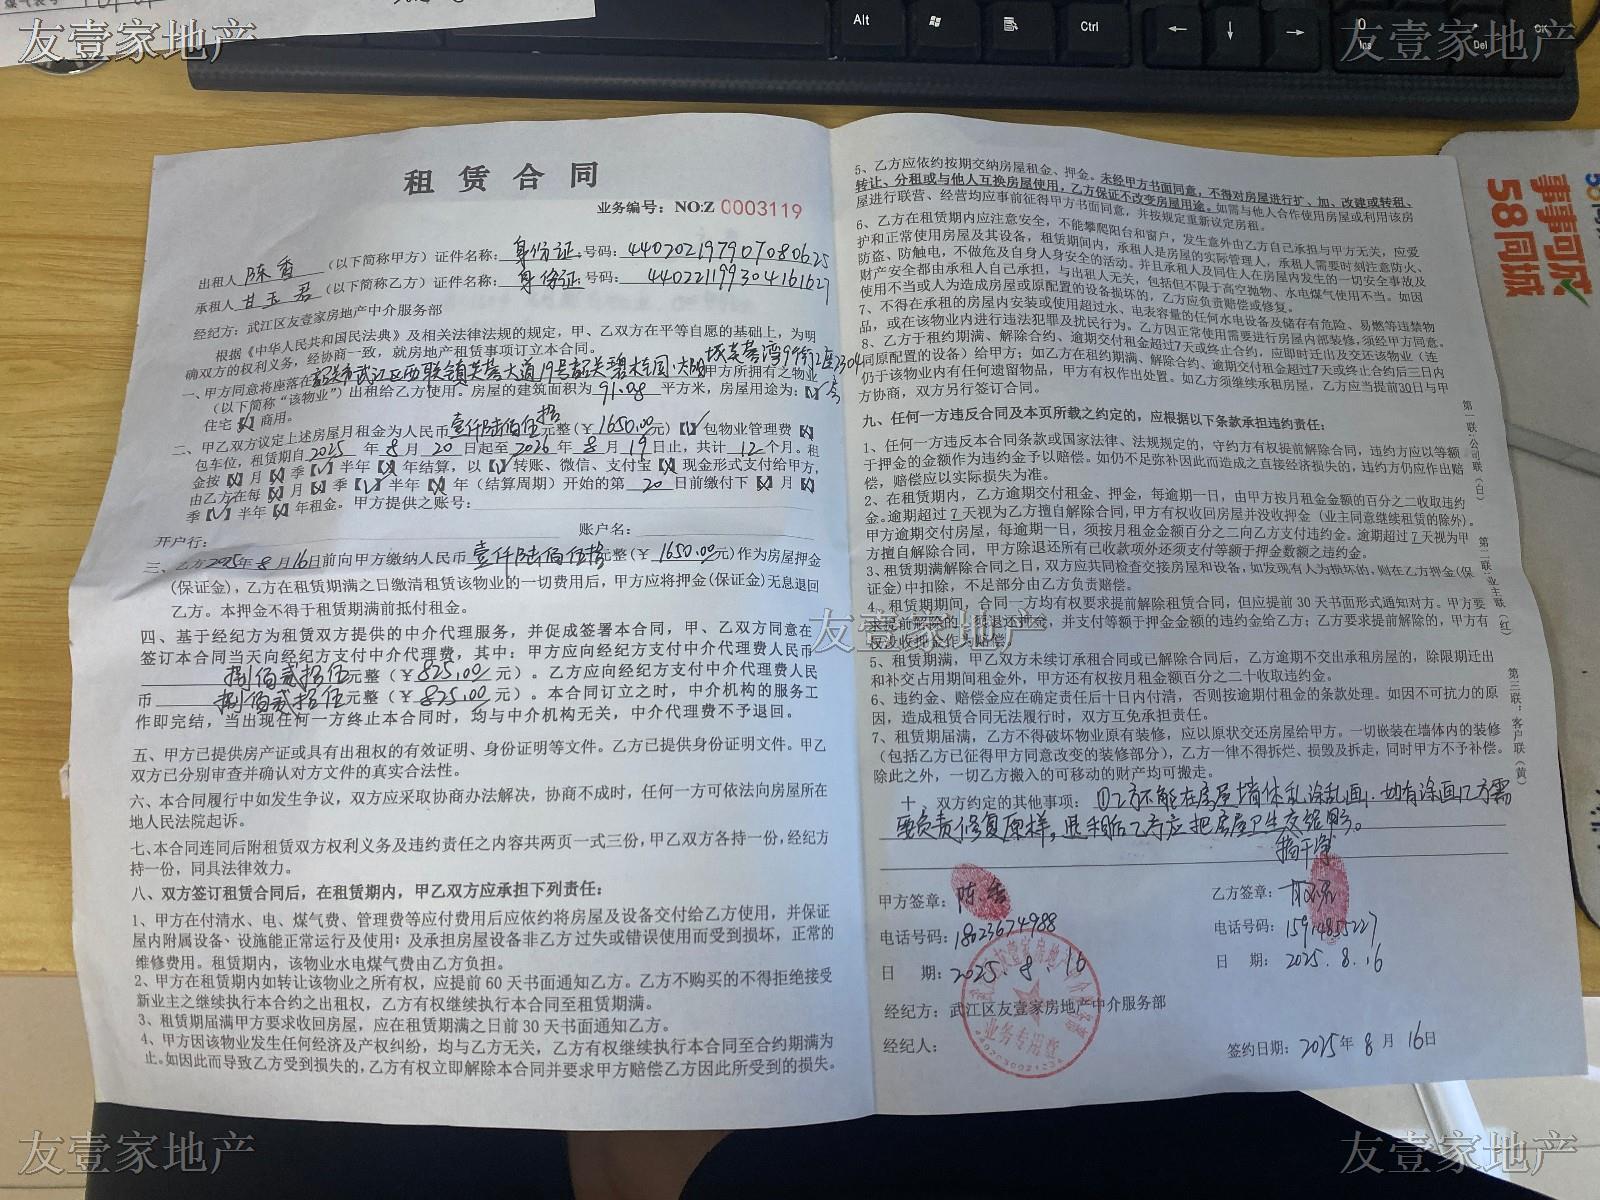 友壹家地产
友壹家地产
Alt
Ctrl
Ins
Del
58同城
事事可成
租赁合同
业务编号：NO:Z 0003119
出租人 陈香 （以下简称甲方）证件名称：身份证 号码：440202197907080625
承租人 甘玉君 （以下简称乙方）证件名称：身份证 号码：440221199304161627
经纪方：武江区友壹家房地产中介服务部
根据《中华人民共和国民法典》及相关法律法规的规定，甲、乙双方在平等自愿的基础上，为明
确双方的权利义务，经协商一致，就房地产租赁事项订立本合同。
一、甲方同意将座落在韶关市武江区西联镇芙蓉大道19号韶关碧桂园·太阳城芙蓉湾99街2座2304 甲方所拥有之物业
（以下简称“该物业”）出租给乙方使用。房屋的建筑面积为 91.08 平方米，房屋用途为：
住宅 商用。
二、甲乙双方议定上述房屋月租金为人民币壹仟陆佰伍拾元整（￥1650.00元）【√】包物业管理费
包车位，租赁期自2025 年 8 月 20 日起至 2026 年 8 月 19 日止，共计 12 个月。租
金按 月 季【√】半年 年结算，以【√】转账、微信、支付宝 现金形式支付给甲方，
由乙方在每 月 季【√】半年 年（结算周期）开始的第 20 日前缴付下 月
季【√】半年 年租金。甲方提供之账号：
开户行： 账户名：
三、乙方2025年8月16日前向甲方缴纳人民币 壹仟陆佰伍拾元整（￥1650.00元）作为房屋押金
（保证金），乙方在租赁期满之日缴清租赁该物业的一切费用后，甲方应将押金（保证金）无息退回
乙方。本押金不得于租赁期满前抵付租金。
四、基于经纪方为租赁双方提供的中介代理服务，并促成签署本合同，甲、乙双方同意在
签订本合同当天向经纪方支付中介代理费，其中：甲方应向经纪方支付中介代理费人民币
捌佰贰拾伍元整（￥825.00元）。乙方应向经纪方支付中介代理费人民
币 捌佰贰拾伍元整（￥825.00元）。本合同订立之时，中介机构的服务工
作即完结，当出现任何一方终止本合同时，均与中介机构无关，中介代理费不予退回。
五、甲方已提供房产证或具有出租权的有效证明、身份证明等文件。乙方已提供身份证明文件。甲乙
双方已分别审查并确认对方文件的真实合法性。
六、本合同履行中如发生争议，双方应采取协商办法解决，协商不成时，任何一方可依法向房屋所在
地人民法院起诉。
七、本合同连同后附租赁双方权利义务及违约责任之内容共两页一式三份，甲乙双方各持一份，经纪方
持一份，同具法律效力。
八、双方签订租赁合同后，在租赁期内，甲乙双方应承担下列责任：
1、甲方在付清水、电、煤气费、管理费等应付费用后应依约将房屋及设备交付给乙方使用，并保证
屋内附属设备、设施能正常运行及使用；及承担房屋设备非乙方过失或错误使用而受到损坏，正常的
维修费用。租赁期内，该物业水电煤气费由乙方负担。
2、甲方在租赁期内如转让该物业之所有权，应提前60天书面通知乙方。乙方不购买的不得拒绝接受
新业主之继续执行本合约之出租权，乙方有权继续执行本合同至租赁期满。
3、租赁期届满甲方要求收回房屋，应在租赁期满之日前30天书面通知乙方。
4、甲方因该物业发生任何经济及产权纠纷，均与乙方无关，乙方有权继续执行本合同至合约期满为
止。如因此而导致乙方受到损失的，乙方有权立即解除本合同并要求甲方赔偿乙方因此所受到的损失。
5、乙方应依约按期交纳房屋租金、押金。未经甲方书面同意，不得对房屋进行扩、加、改建或转租、
转让、分租或与他人互换房屋使用，乙方保证不改变房屋用途。如需与他人合作使用房屋或利用该房
屋进行联营、经营均应事前征得甲方书面同意，并按规定重新议定房租。
6、乙方在租赁期内应注意安全，不能攀爬阳台和窗户，发生意外由乙方自己承担与甲方无关，应爱
护和正常使用房屋及其设备，租赁期间内，承租人是房屋的实际管理人，承租人需要时刻注意防火、
防盗、防触电，不做危及自身人身安全的活动。并且承租人及同住人在房屋内发生的一切安全事故及
财产安全都由承租人自己承担，与出租人无关，包括但不限于高空抛物、水电煤气使用不当。如因
使用不当或人为造成房屋或原配置的设备损坏的，乙方应负责赔偿或修复。
7、不得在承租的房屋内安装或使用超过水、电表容量的任何水电设备及储存有危险、易燃等违禁物
品，或在该物业内进行违法犯罪及扰民行为。乙方因正常使用需要进行房屋内部装修，须经甲方同意。
8、乙方于租约期满、解除合约、逾期交付租金超过7天或终止合约，应即时迁出及交还该物业（连
同原配置的设备）给甲方；如乙方在租约期满、解除合约、逾期交付租金超过7天或终止合约后三日内
仍于该物业内有任何遗留物品，甲方有权作出处置。如乙方须继续承租房屋，乙方应当提前30日与甲
方协商，双方另行签订合同。
九、任何一方违反合同及本页所载之约定的，应根据以下条款承担违约责任：
1、任何一方违反本合同条款或国家法律、法规规定的，守约方有权提前解除合同，违约方应以等额
于押金的金额作为违约金予以赔偿。如仍不足弥补因此而造成之直接经济损失的，违约方仍应作出赔
偿，赔偿应以实际损失为准。
2、在租赁期内，乙方逾期交付租金、押金，每逾期一日，由甲方按月租金金额的百分之二收取违约
金。逾期超过7天视为乙方擅自解除合同，甲方有权收回房屋并没收押金（业主同意继续租赁的除外）。
甲方逾期交付房屋，每逾期一日，须按月租金金额百分之二向乙方支付违约金。逾期超过7天视为甲
方擅自解除合同，甲方除退还所有已收款项外还须支付等额于押金数额之违约金。
3、租赁期满解除合同之日，双方应共同检查交接房屋和设备，如发现有人为损坏的，则在乙方押金（保
证金）中扣除，不足部分由乙方负责赔偿。
4、租赁期期间，合同一方均有权要求提前解除租赁合同，但应提前30天书面形式通知对方。甲方要
求提前解除的，须退还押金，并支付等额于押金金额的违约金给乙方；乙方要求提前解除的，甲方有
权没收押金作为赔偿。
5、租赁期满，甲乙双方未续订承租合同或已解除合同后，乙方逾期不交出承租房屋的，除限期迁出
和补交占用期间租金外，甲方还有权按月租金额百分之二十收取违约金。
6、违约金、赔偿金应在确定责任后十日内付清，否则按逾期付租金的条款处理。如因不可抗力的原
因，造成租赁合同无法履行时，双方互免承担责任。
7、租赁期届满，乙方不得破坏物业原有装修，应以原状交还房屋给甲方。一切嵌装在墙体内的装修
（包括乙方已征得甲方同意改变的装修部分），乙方一律不得拆烂、损毁及拆走，同时甲方不予补偿。
除此之外，一切乙方搬入的可移动的财产均可搬走。
十、双方约定的其他事项：①乙方不能在房屋墙体乱涂乱画，如有涂画乙方需
要负责修复原样，退租后乙方应把房屋卫生
搞干净
第一联：公司联（白）
第二联：业主联（红）
第三联：客户联（黄）
甲方签章：陈香
乙方签章：
电话号码：18023674988
电话号码：15914855227
日 期：2025.8.16
日 期：2025.8.16
经纪方：武江区友壹家房地产中介服务部
经纪人：
签约日期：2025年8月16日
业务专用章
友壹家地产
友壹家地产
友壹家地产